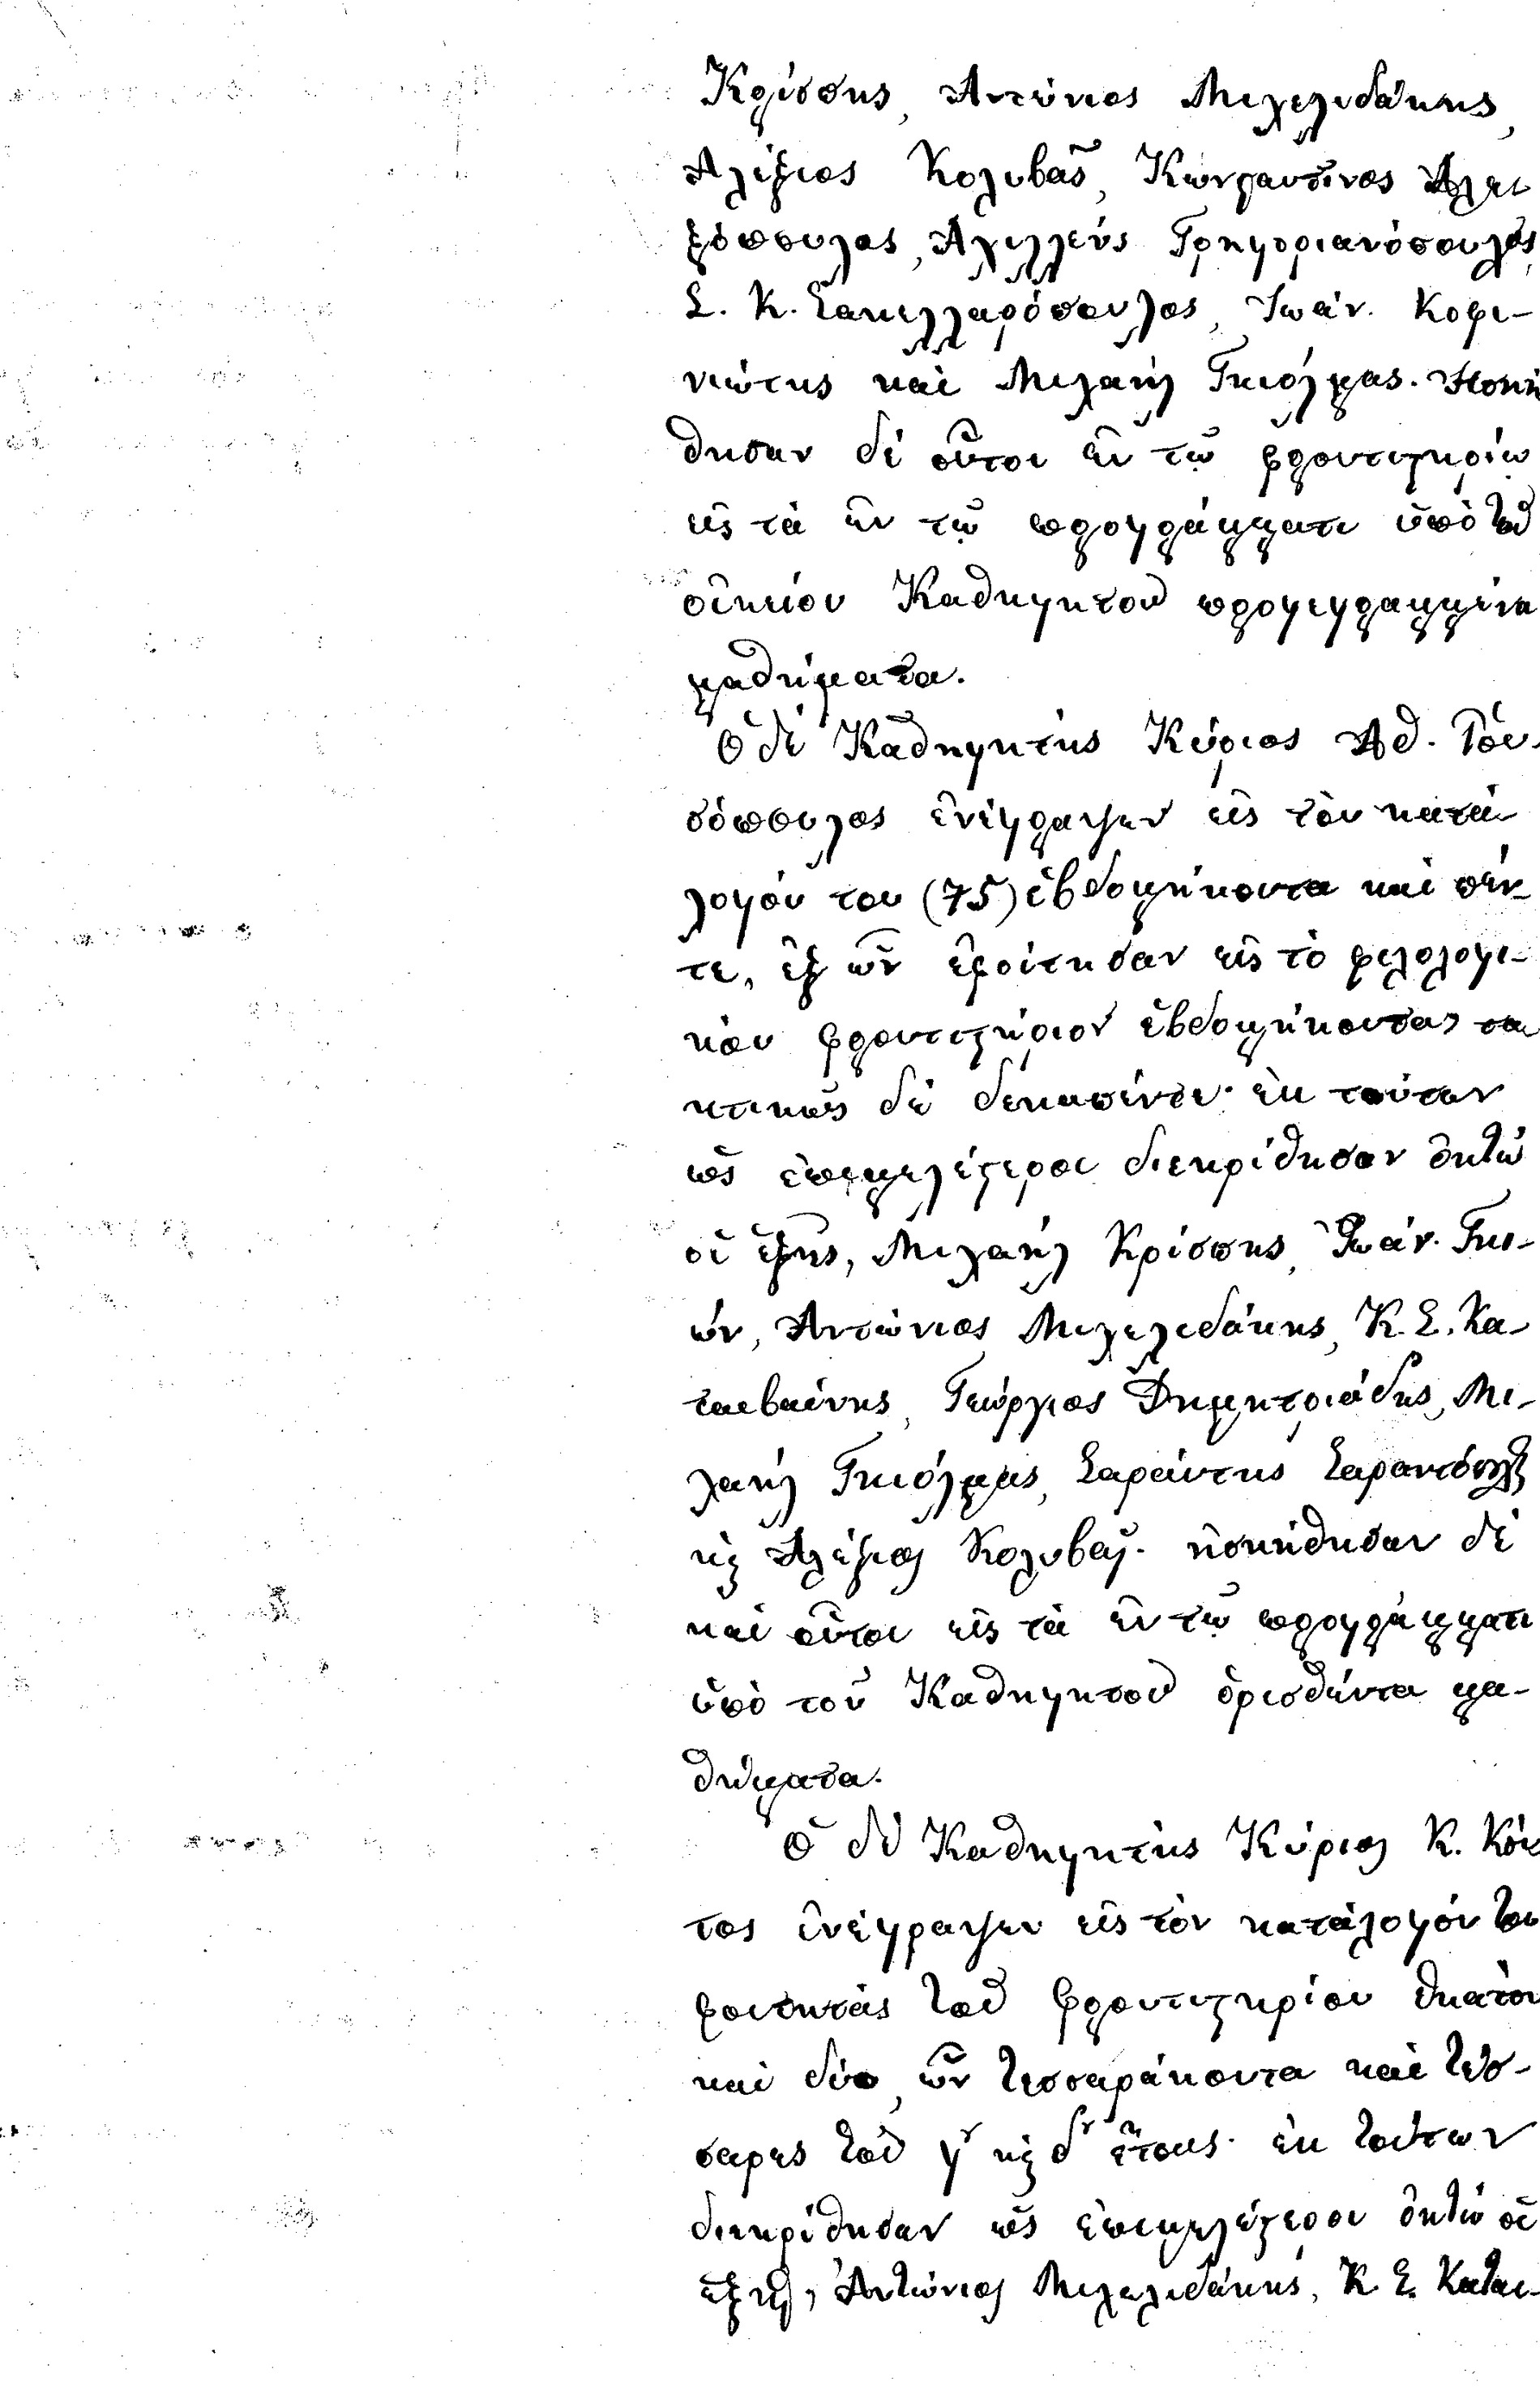 Κρίσπης, Αντώνιος Μιχελιδάκης,
Αλέξιος Κολυβᾶς, Κωνσταντῖνος Αλε
ξόπουλος, Αχιλλεύς Γρηγοριανόπουλος,
Σ. Κ. Σακελλαρόπουλος, Ἰωάν. Κοφι-
νιώτης καὶ Μιχαήλ Γκιόλμας. Ησκή
θησαν δέ οὗτοι ἐν τῷ φροντιστηρίω
εἰς τὰ ἐν τῷ προγράμματι ὑπὸ τοῦ
οἰκείου Καθηγητοῦ προγεγραμμένα
μαθήματα.
Ὁ δέ Καθηγητὴς Κύριος Αθ. Ῥου-
σόπουλος ἐνέγραψεν εἰς τὸν κατά
λογόν του (75) ἑβδομήκοντα καὶ πέν-
τε, ἐξ ὧν ἐφοίτησαν εἰς τὸ φιλολογι-
κὸν φροντιστήριον ἑβδομήκοντα, τα
κτικῶς δὲ δεκαπέντε· ἐκ τούτων
ὡς ἐπιμελέστεροι διεκρίθησαν ὀκτώ
οἱ ἑξῆς, Μιχαήλ Κρίσπης, Ἰωάν. Γκι-
ών, Αντώνιος Μιχελιδάκης, Κ. Σ. Κα-
ταιβαίνης, Γεώργιος Δημητριάδης, Μι-
χαήλ Γκιόλμας, Σαράντης Σαραντόπουλος
κὶ Αλέξιος Κολυβᾶς. ἠσκήθησαν δέ
καὶ οὗτοι εἰς τὰ ἐν τῷ προγράμματι
ὑπὸ τοῦ Καθηγητοῦ ὁρισθέντα μα-
θήματα.
Ὁ δὲ Καθηγητὴς Κύριος Κ. Κόν
τος ἐνέγραψεν εἰς τὸν κατάλογόν του
φοιτητὰς τοῦ φροντιστηρίου ἑκατὸν
καὶ δύο, ὧν τεσσαράκοντα καὶ τέσ-
σαρες τοῦ γʹ κὶ δʹ ἔτους· ἐκ τούτων
διεκρίθησαν ὡς ἐπιμελέστεροι ὀκτώ οἱ
ἑξῆς, Ἀντώνιος Μιχελιδάκης, Κ. Σ. Καται-